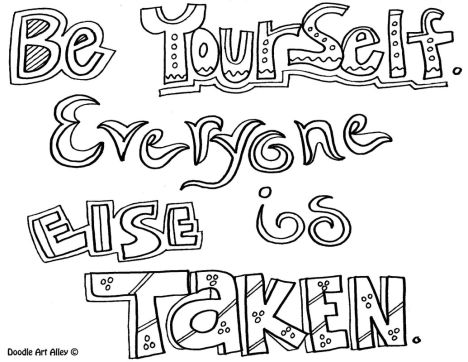 Be Yourself.
Everyone
ELSE is
TAKEN.
Doodle Art Alley ©